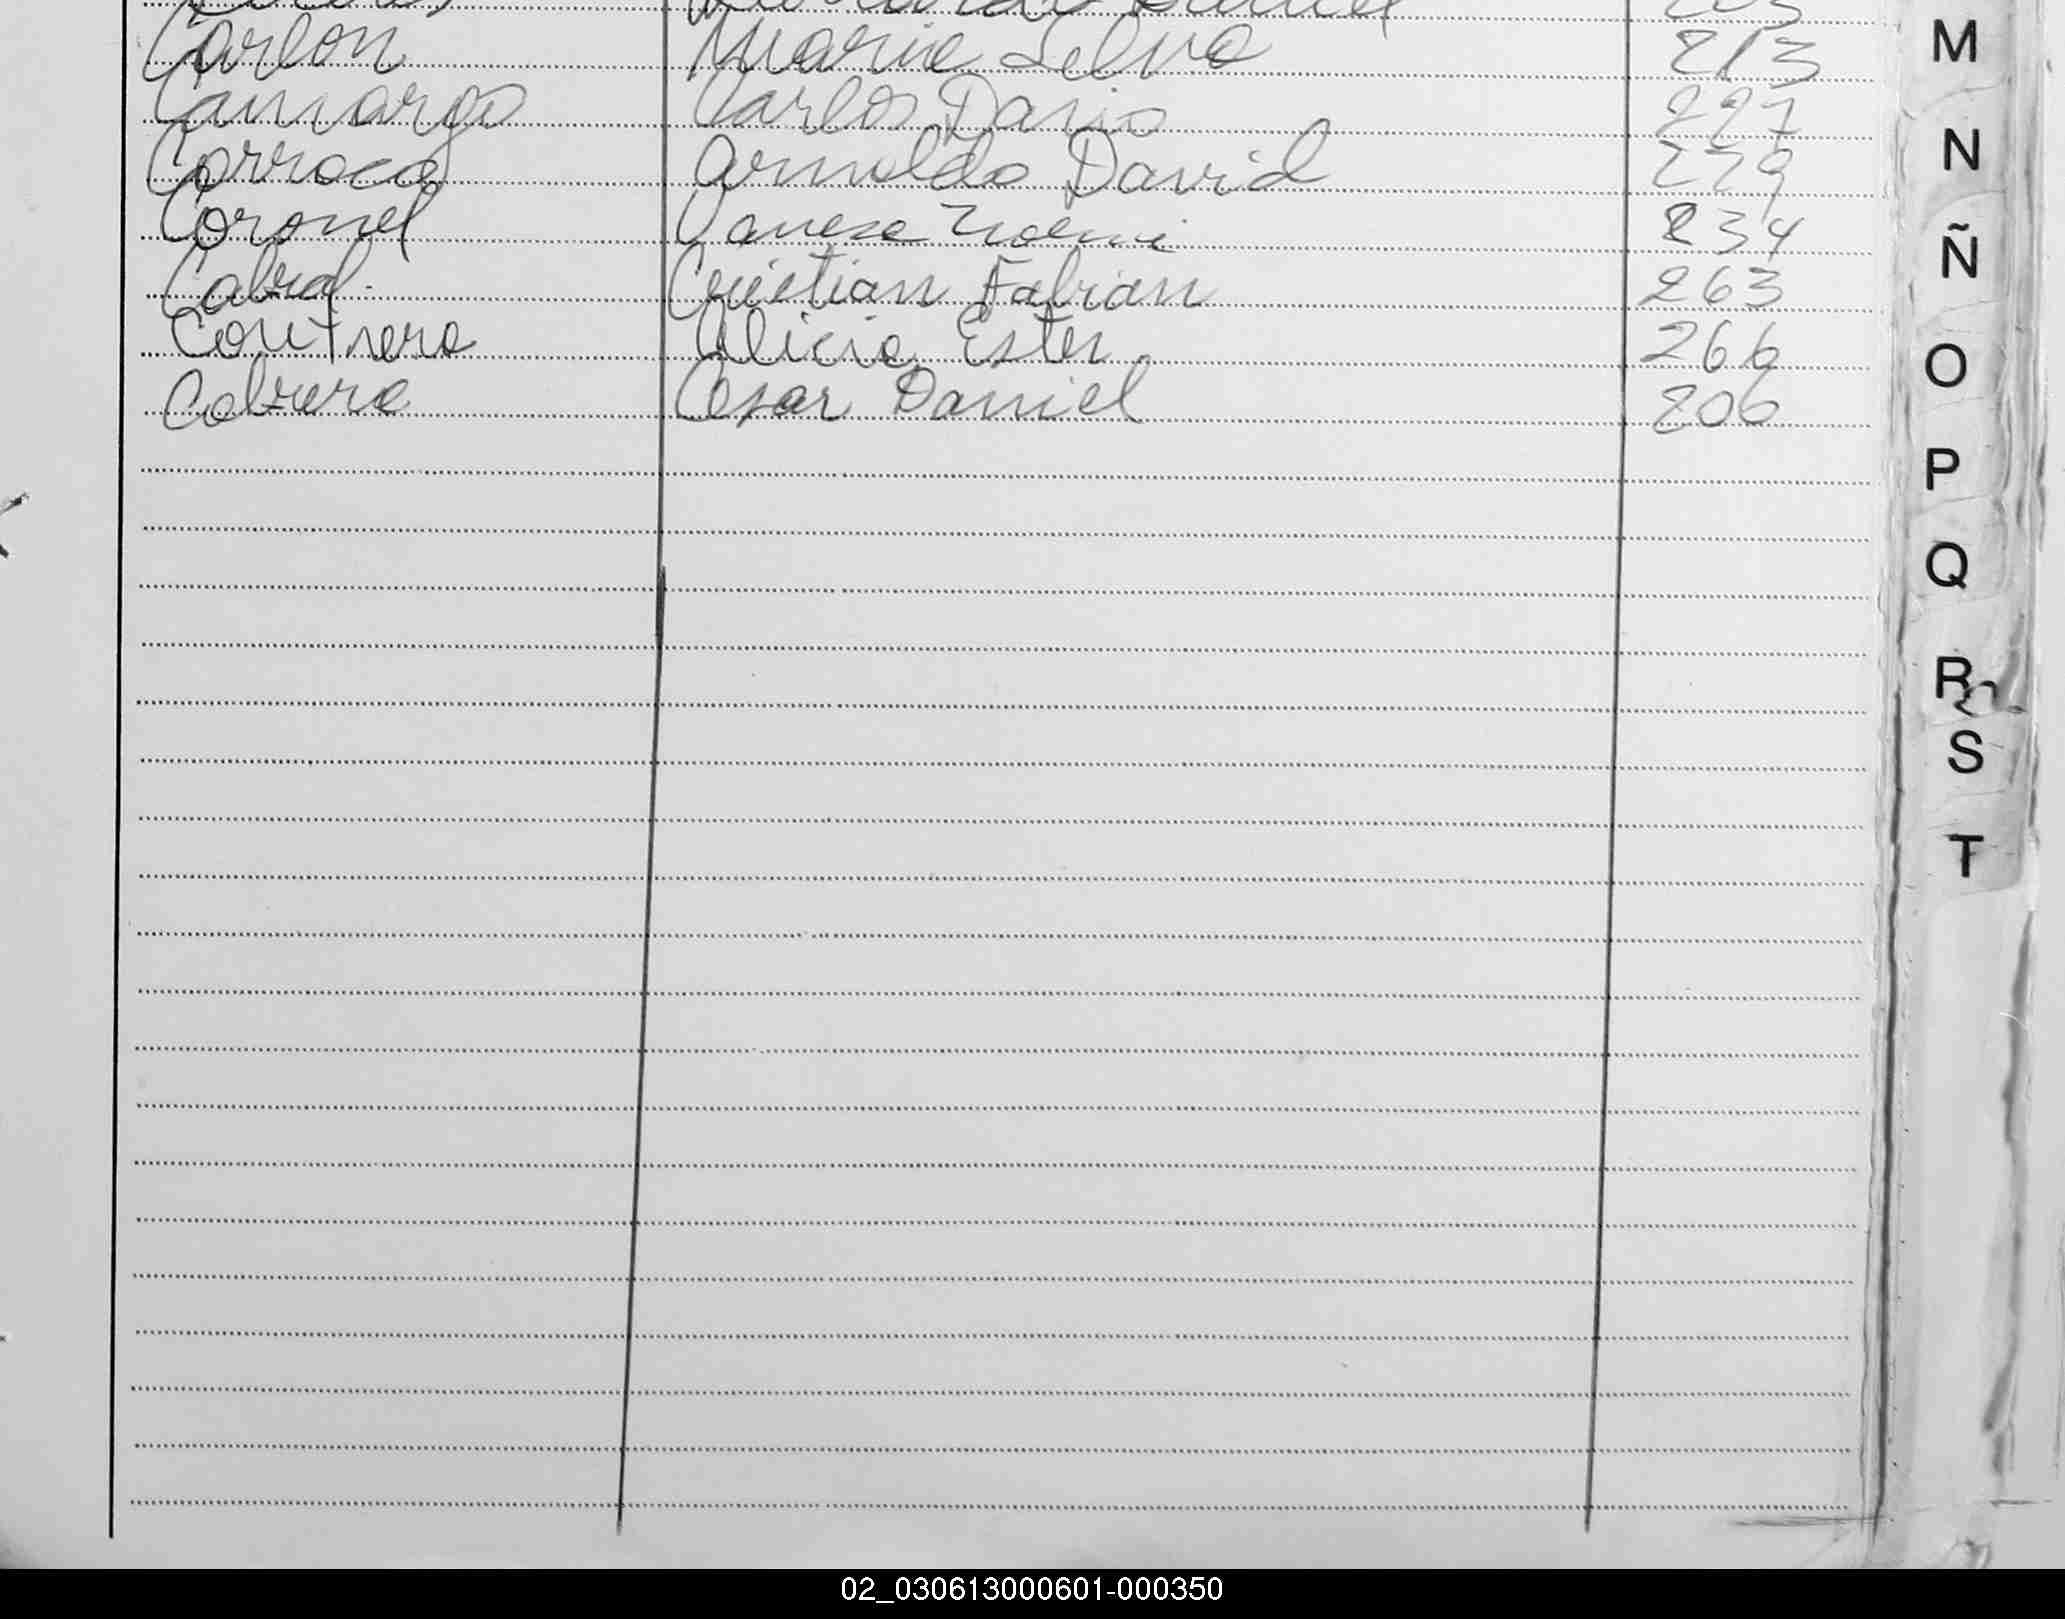 Carlon Maria Silva 213
Camargo Carlos Dario 227
Corroca Arnoldo David 229
Coronel Vanesa Noemi 234
Cabral Cristian Fabian 263
Contrera Alicia Ester 266
Cabrera Cesar Daniel 206
M
N
Ñ
O
P
Q
R
S
T
02_030613000601-000350